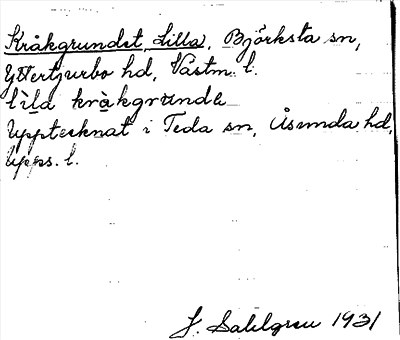 Kråkgrundet, Lilla, Björksta sn,
Yttertjurbo hd, Västm. l.
lìla kràkgrùndə
Upptecknat i Teda sn, Åsunda hd,
Upps. l.
J. Sahlgren 1931